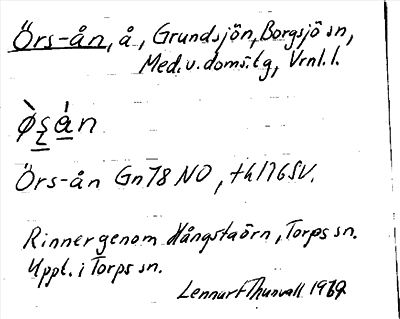 Örs-ån, å, Grundsjön, Borgsjö sn,
Med. v. doms. tg, Vrnl. l.
Örs-ån Gn 78 NO, th 176 SV.
Rinner genom Hångstaörn, Torps sn.
Uppt. i Torps sn.
Lennart Thunvall